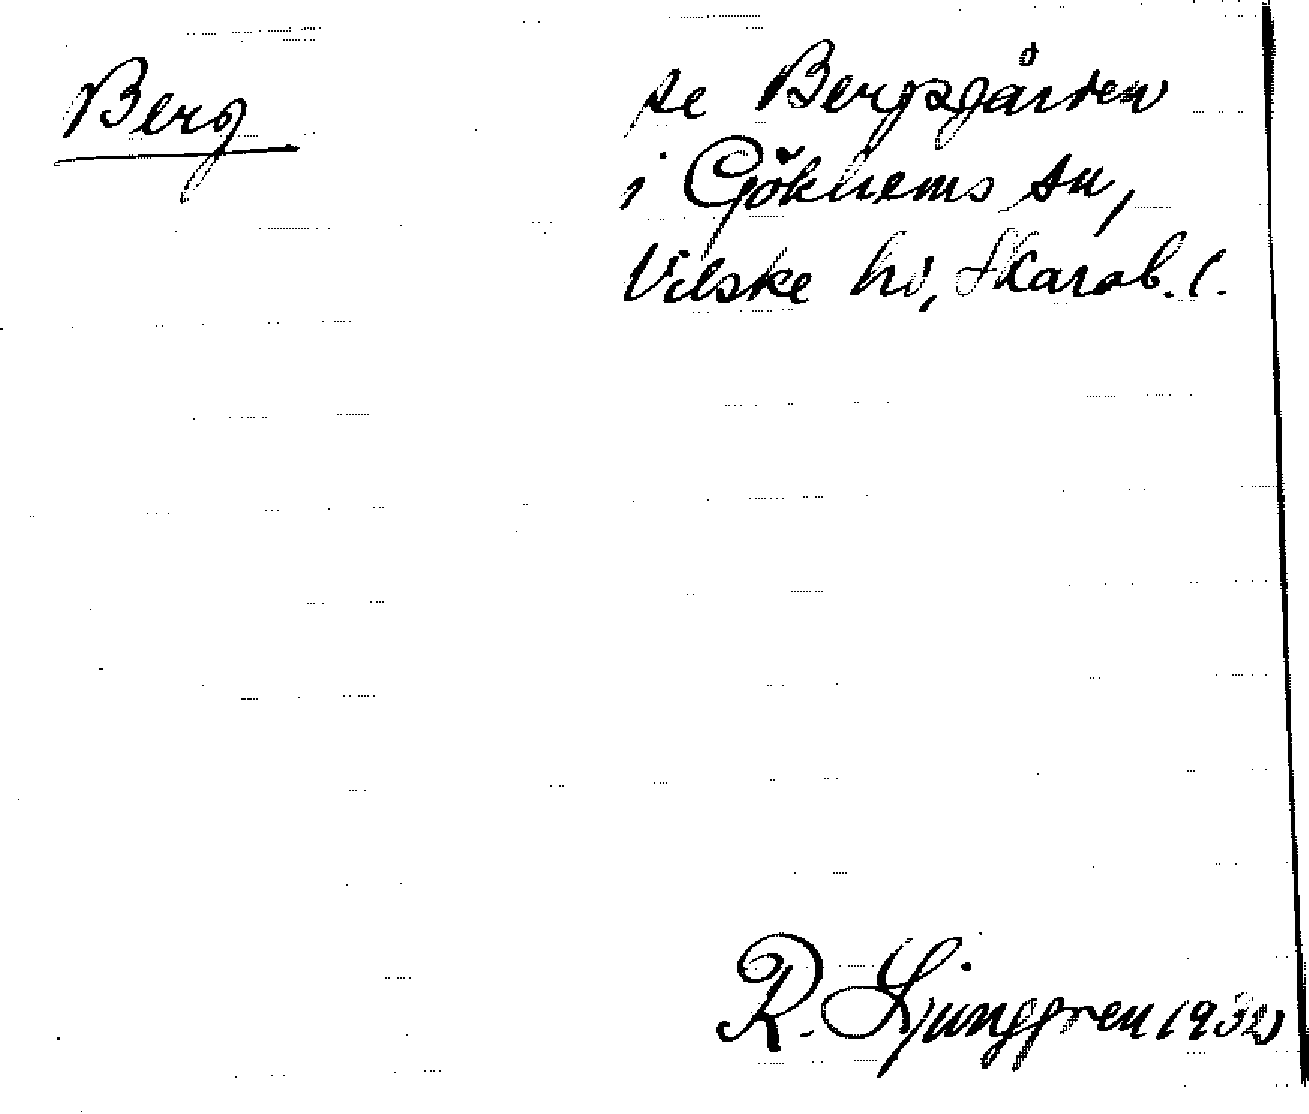 Berg
se Bergsgården
i Gökhems sn,
Vilske hd, Skarab. l.
R. Ljunggren 1932